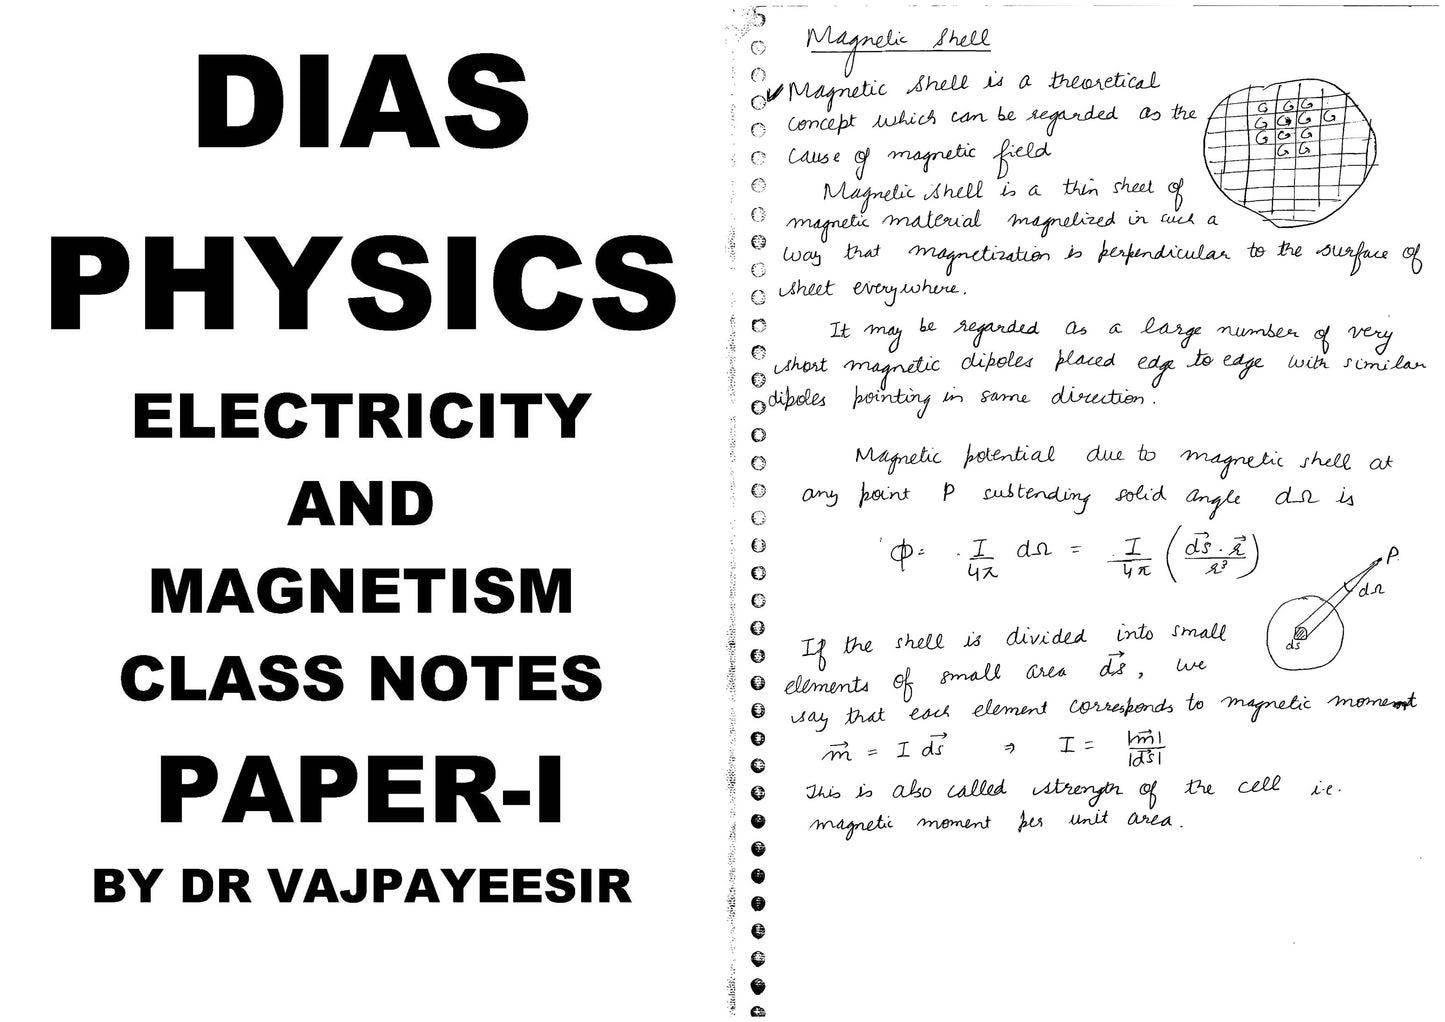 DIAS
PHYSICS
ELECTRICITY
AND
MAGNETISM
CLASS NOTES
PAPER-I
BY DR VAJPAYEESIR
Magnetic Shell
Magnetic Shell is a theoretical
concept which can be regarded as the
cause of magnetic field
Magnetic shell is a thin sheet of
magnetic material magnetized in such a
way that magnetization is perpendicular to the surface of
sheet everywhere.
It may be regarded as a large number of very
short magnetic dipoles placed edge to edge with similar
dipoles pointing in same direction.
Magnetic potential due to magnetic shell at
any point P subtending solid angle dΩ is
ϕ = I/4π dΩ = I/4π (d→s · →r / r³)
P
dΩ
ds
If the shell is divided into small
elements of small area d→s, we
say that each element corresponds to magnetic moment
→m = I d→s ⇒ I = |→m| / |d→s|
This is also called strength of the cell i.e.
magnetic moment per unit area.